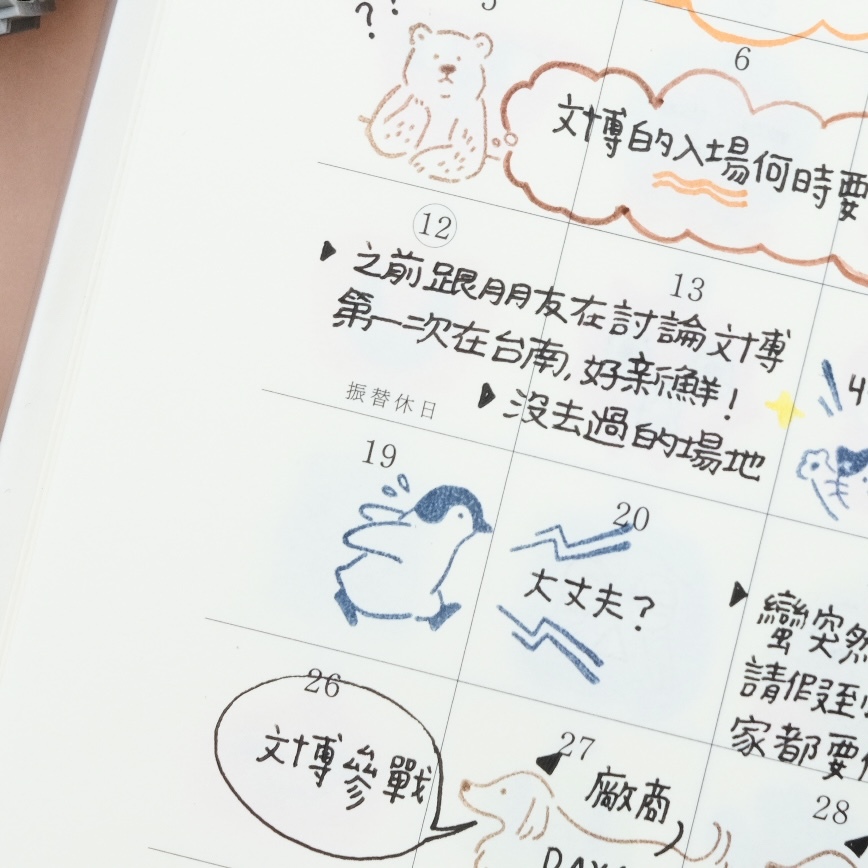 ??
5
6
文博的入場何時要
12
▶之前跟朋友在討論文博
第一次在台南,好新鮮!
▶沒去過的場地
振替休日
13
4
19
20
大丈夫?
▶蠻突然
請假到
家都要
26
文博參戰
27
廠商
DAY
28